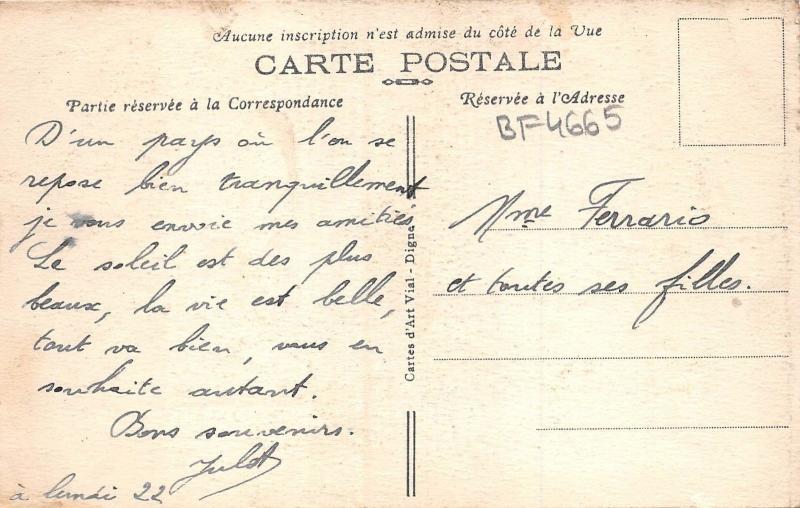 Aucune inscription n'est admise du côté de la Vue
CARTE POSTALE
Partie réservée à la Correspondance
Réservée à l'Adresse
BF4665
D'un pays où l'on se
repose bien tranquillement
je vous envoie mes amitiés
Le soleil est des plus
beaux, la vie est belle,
tout va bien, vous en
souhaite autant.
Bons souvenirs.
Julot
à lundi 22
Cartes d'Art Vial - Digne
Mme Ferrario
et toutes ses filles.